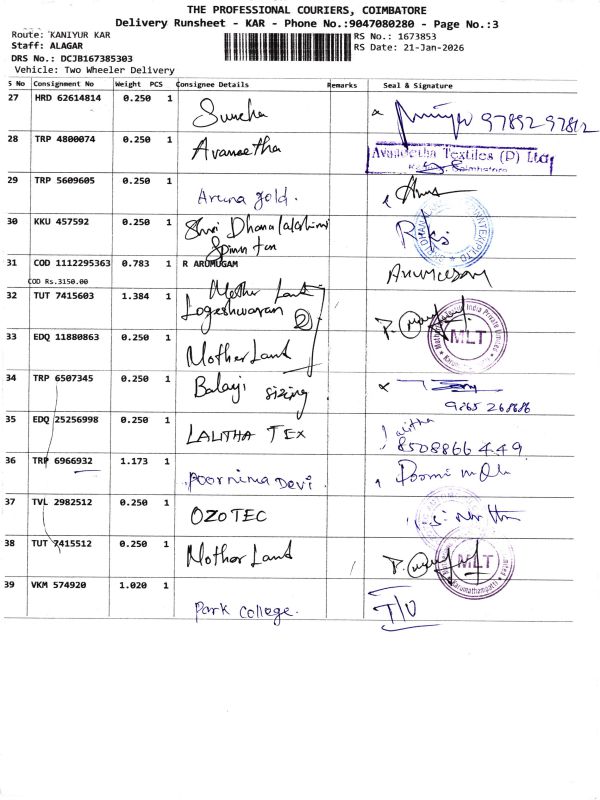 THE PROFESSIONAL COURIERS, COIMBATORE
Delivery Runsheet - KAR - Phone No.:9047080280 - Page No.:3
Route: KANIYUR KAR
RS No.: 1673853
Staff: ALAGAR
RS Date: 21-Jan-2026
DRS No.: DCJB167385303
Vehicle: Two Wheeler Delivery
S No Consignment No Weight PCS Consignee Details Remarks Seal & Signature
27 HRD 62614814 0.250 1 Suncha 97892 97812
28 TRP 4800074 0.250 1 Avaneetha Avaneetha Textiles (P) Ltd
29 TRP 5609605 0.250 1 Aruna gold.
30 KKU 457592 0.250 1 Shri Dhanalakshmi
Spinntex
31 COD 1112295363 0.783 1 R ARUMUGAM Arumugam
COD Rs.3150.00
32 TUT 7415603 1.384 1 Mother Land
Logeshwaran 2 MLT
33 EDQ 11880863 0.250 1 Mother Land
34 TRP 6507345 0.250 1 Balaji sizing
35 EDQ 25256998 0.250 1 LALITHA TEX Lalitha
8508866449
36 TRP 6966932 1.173 1 Poornima Devi.
37 TVL 2982512 0.250 1 OZOTEC
38 TUT 7415512 0.250 1 Mother Land MLT
39 VKM 574920 1.020 1 Park College.